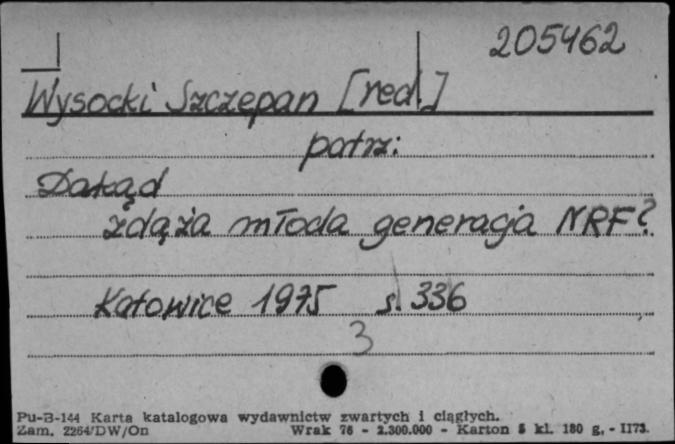 205462
Wysocki Szczepan [red.]
patrz:
Dokąd
zdąża młoda generacja NRF?
Katowice 1975 s. 336
3
Pu-B-144 Karta katalogowa wydawnictw zwartych i ciągłych.
Zam. 2264/DW/On Wrak 76 - 2.300.000 - Karton 5 kl. 180 g. - II73.